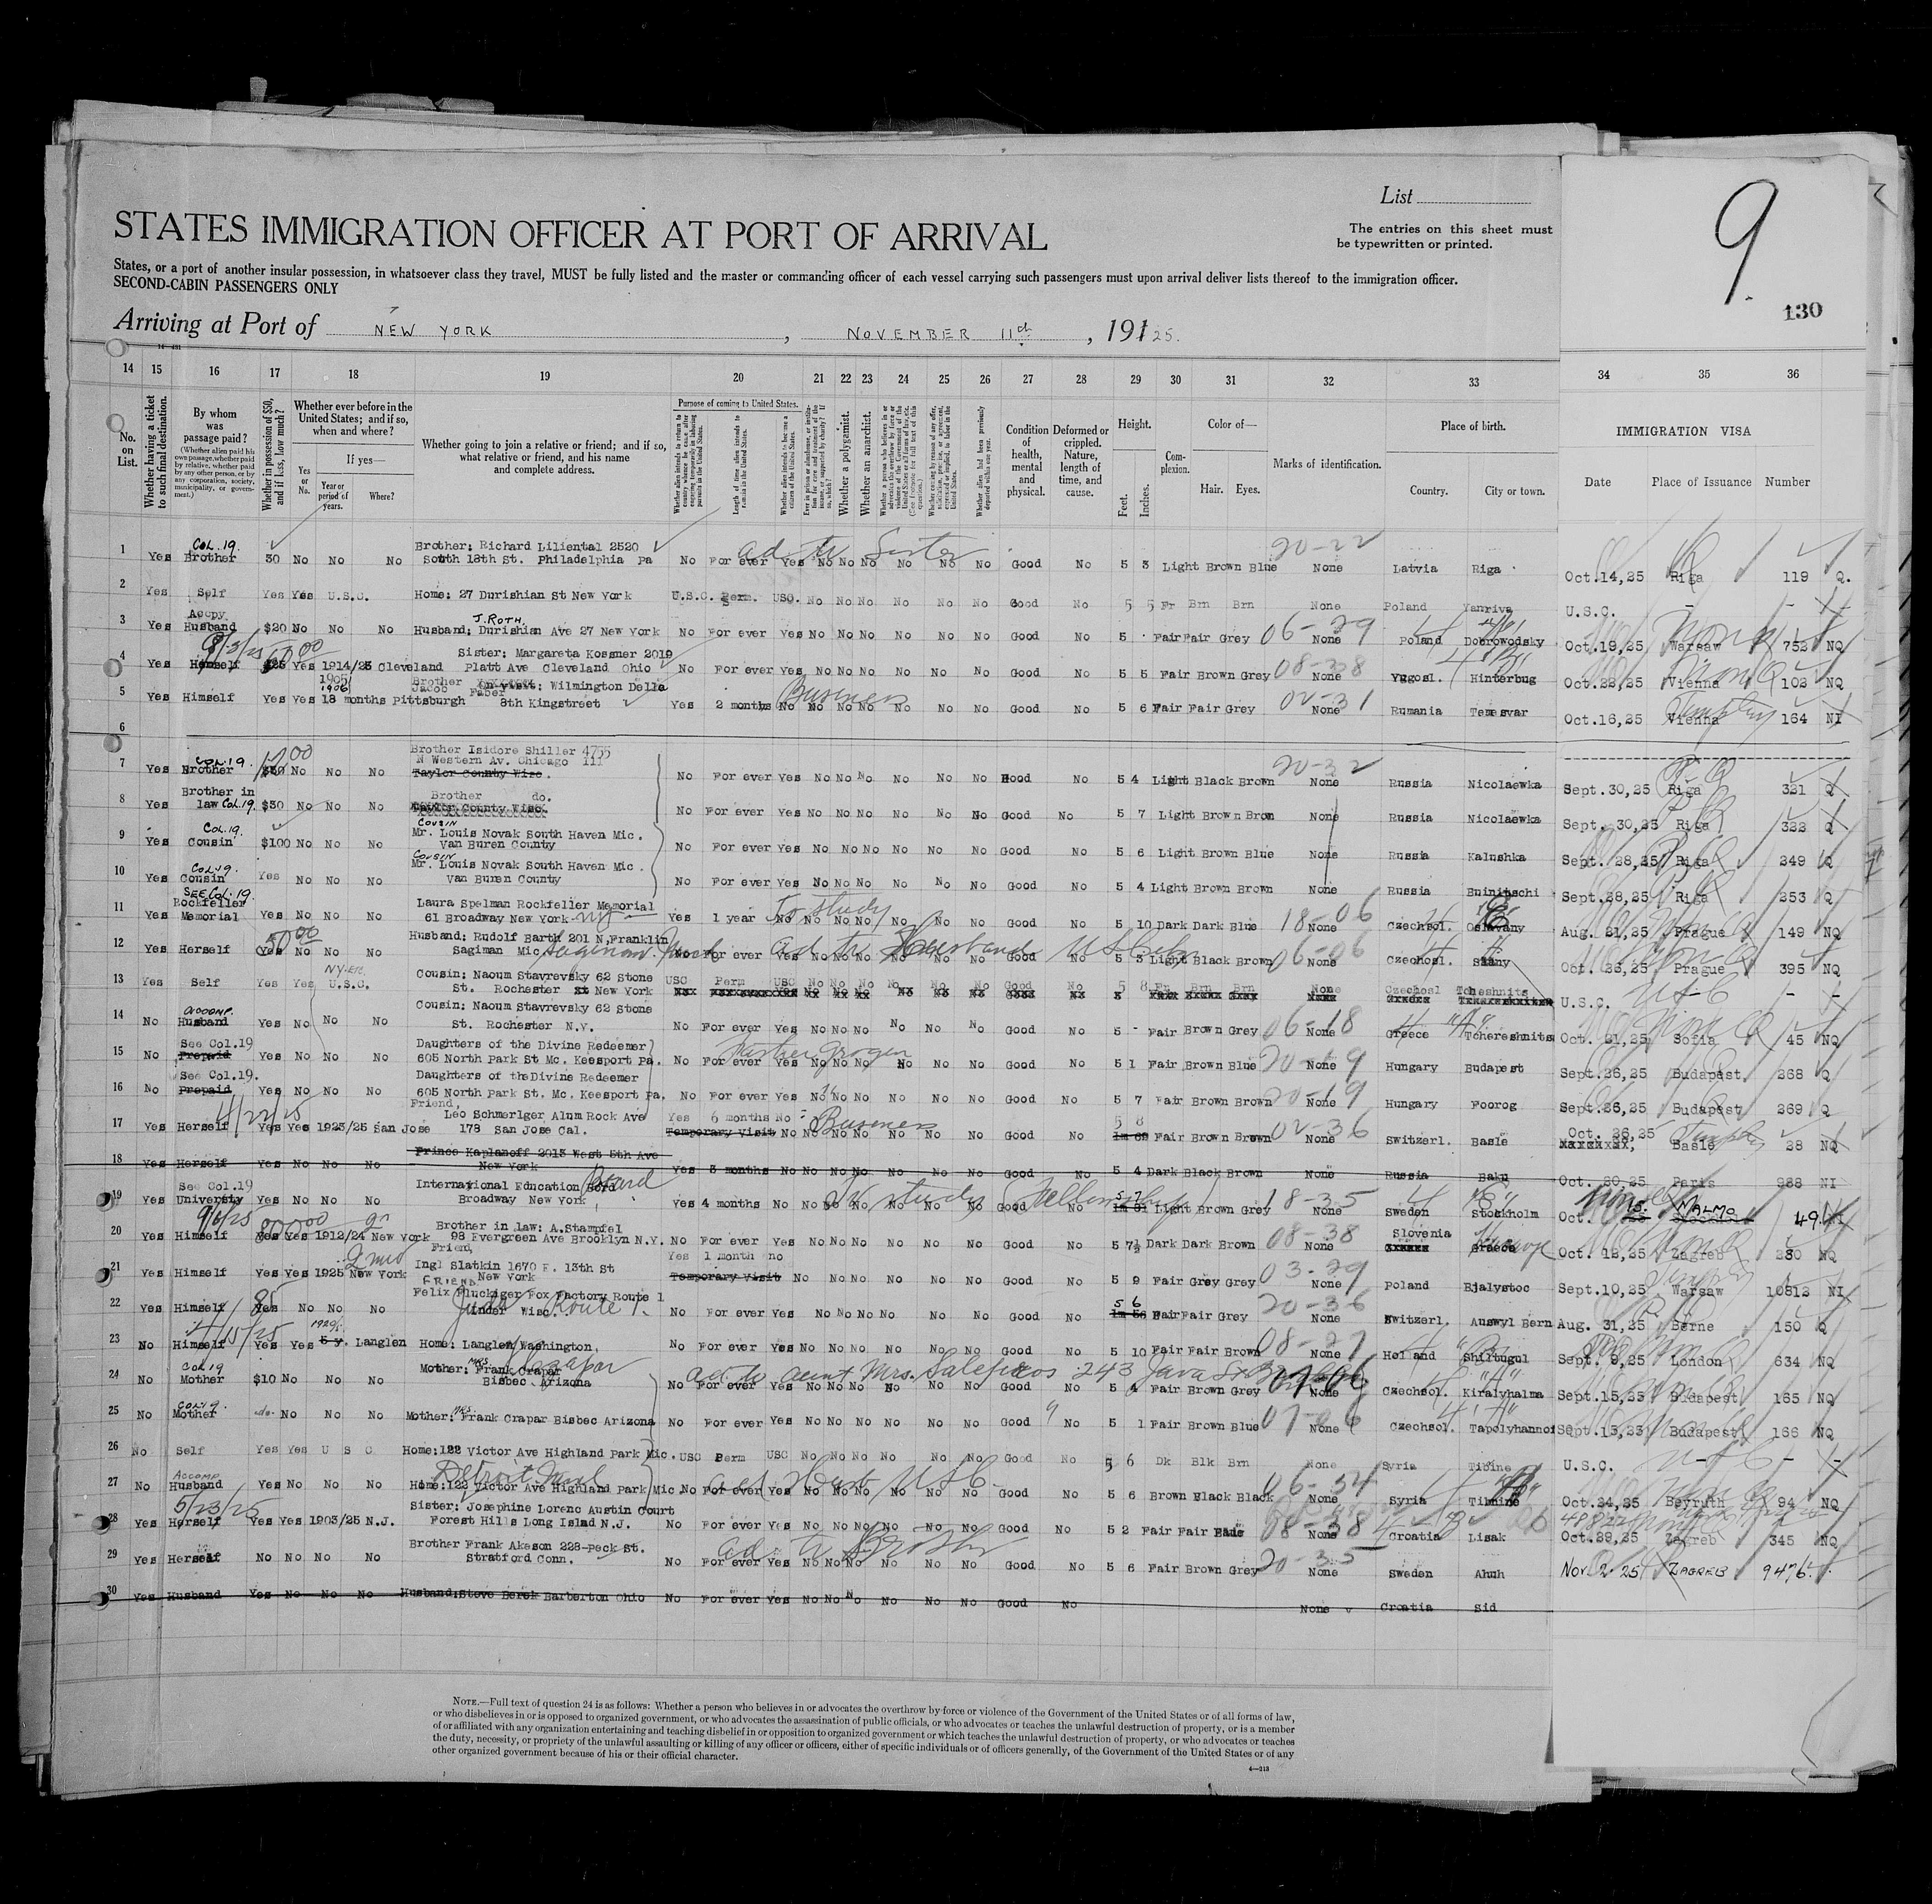 List
STATES IMMIGRATION OFFICER AT PORT OF ARRIVAL
The entries on this sheet must
be typewritten or printed.
9
130
States, or a port of another insular possession, in whatsoever class they travel, MUST be fully listed and the master or commanding officer of each vessel carrying such passengers must upon arrival deliver lists thereof to the immigration officer.
SECOND-CABIN PASSENGERS ONLY
Arriving at Port of NEW YORK, NOVEMBER 11th, 19125.
14 15 16 17 18 19 20 21 22 23 24 25 26 27 28 29 30 31 32 33 34 35 36
No. on List.
Whether having a ticket to such final destination.
By whom was passage paid?
(Whether alien paid his own passage, whether paid by relative, whether paid by any other person, or by any corporation, society, municipality, or government.)
Whether in possession of $50, and if less, how much?
Whether ever before in the United States; and if so, when and where?
Yes or No.
If yes—
Year or period of years.
Where?
Whether going to join a relative or friend; and if so, what relative or friend, and his name and complete address.
Purpose of coming to United States.
Length of time alien intends to remain in the United States.
Whether alien intends to become a citizen of the United States.
Whether a polygamist.
Whether an anarchist.
Condition of health, mental and physical.
Deformed or crippled. Nature, length of time, and cause.
Height.
Feet.
Inches.
Complexion.
Color of—
Hair.
Eyes.
Marks of identification.
Place of birth.
Country.
City or town.
IMMIGRATION VISA
Date
Place of Issuance
Number
1 Yes Col.19. Brother 30 No No No Brother: Richard Liliental 2520 South 18th St. Philadelphia Pa No For ever Yes No No No No No No Good No 5 3 Light Brown Blue 20-22 None Latvia Riga Oct.14,25 Riga 119 Q.
2 Yes Self Yes Yes U.S.C. Home: 27 Durishian St New York U.S.C. Perm. USC. No No No No No No Good No 5 5 Fr Brn Brn None Poland Yanriva U.S.C. - -
3 Yes Accpy. Husband $20 No No No J.ROTH. Husband: Durishian Ave 27 New York No For ever Yes No No No No No No Good No 5 Fair Fair Grey 06-29 None Poland Dobrowodsky Oct.19,25 Warsaw 752 NQ
4 Yes Himself $25 Yes 1914/25 Cleveland Sister: Margareta Kossner 2019 Platt Ave Cleveland Ohio No For ever Yes No No No No No No Good No 5 5 Fair Brown Grey 08-38 None Yugosl. Hinterbug Oct.22,25 Vienna 102 NQ
5 Yes Himself Yes Yes 1905/1906 18 months Pittsburgh Brother Jacob Faber: Wilmington Della 8th Kingstreet Yes 2 months No No No No No No No Business Good No 5 6 Fair Fair Grey 02-31 None Rumania Temesvar Oct.16,25 Vienna 164 NI
6
7 Yes Col.19. Brother $50 No No No Brother Isidore Shiller 4755 N Western Av. Chicago Ill Taylor County Wisc. No For ever Yes No No No No No No Good No 5 4 Light Black Brown 20-32 None Russia Nicolaewka Sept.30,25 Riga 321 Q
8 Yes Brother in law Col.19. $30 No No No Brother do. Taylor County Wisc. No For ever Yes No No No No No No Good No 5 7 Light Brown Brow None Russia Nicolaewka Sept. 30,25 Riga 322 Q
9 Yes Col.19. Cousin $100 No No No Cousin Mr. Louis Novak South Haven Mic. Van Buren County No For ever Yes No No No No No No Good No 5 6 Light Brown Blue None Russia Kalushka Sept. 28,25 Riga 249 Q
10 Yes Col.19. Cousin Yes No No No Cousin Mr. Louis Novak South Haven Mic. Van Buren County No For ever Yes No No No No No No Good No 5 4 Light Brown Brown None Russia Buinitschi Sept.28,25 Riga 253 Q
11 Yes SEE Col.19 Rockfeller Memorial Yes No No No Laura Spelman Rockfeller Memorial 61 Broadway New York Yes 1 year To study No No No No No No No Good No 5 10 Dark Dark Blue 18-06 None Czechsol. Oslavany Aug. 21,25 Prague 149 NQ
12 Yes Herself Yes 50.00 No No No Husband: Rudolf Barth 201 N.Franklin Sagiman Mic Saginaw For ever Yes No No No No No No ad to Husband Good No 5 3 Light Black Brown 06-06 None Czechosl. Slany Oct. 23,25 Prague 395 NQ
13 Yes Self Yes Yes U.S.C. Cousin: Naoum Stavrevsky 62 Stone St. Rochester New York USC Perm USC No No No No No No Good No 5 8 Fr Brn Brn None Czechosl Tcheshnits U.S.C. - -
14 No Accomp. Husband Yes No No No Cousin: Naoum Stavrevsky 62 Stone St. Rochester N.Y. No For ever Yes No No No No No No Good No 5 - Fair Brown Grey 06-18 None Greece Tchereshnits Oct. 21,25 Sofia 45 NQ
15 No See Col.19 Prepaid Yes No No No Daughters of the Divine Redeemer 605 North Park St Mc. Keesport Pa. No For ever Yes No No No No No No Good No 5 1 Fair Brown Blue 20-19 None Hungary Budapest Sept.26,25 Budapest 268 Q
16 No See Col.19. Prepaid Yes No No No Daughters of the Divine Redeemer 605 North Park St. Mc. Keesport Pa. No For ever Yes No No No No No No Good No 5 7 Fair Brown Brown 20-19 None Hungary Foorog Sept.26,25 Budapest 269 Q
17 Yes Herself Yes Yes 1923/25 San Jose Friend, Leo Schmerlger Alum Rock Ave 178 San Jose Cal. Yes 6 months No Temporary Visit No No No No No No Business Good No 5 8 Fair Brown Brown 02-36 None Switzerl. Basle Oct. 26,25 Basle 28 NQ
18 Yes Herself Yes No No No Prince Kaplanoff 2013 West 5th Ave New York Yes 3 months No No No No No No No Good No 5 4 Dark Black Brown None Russia Baku Oct. 20,25 Paris 988 NI
19 Yes See Col.19 University Yes No No No International Education Bord Board Broadway New York Yes 4 months No No No No No No Good No 5 7 Light Brown Grey 18-35 None Sweden Stockholm Oct. 15. MALMO 49.
20 Yes Himself Yes Yes 1912/24 New York Brother in law: A.Stampfel 93 Evergreen Ave Brooklyn N.Y. No For ever Yes No No No No No No Good No 5 7½ Dark Dark Brown 08-38 None Slovenia Oct. 12,25 Zagreb 280 NQ
21 Yes Himself Yes Yes 1925 New York Friend, Ingl Slatkin 1670 E. 13th St New York Yes 1 month no Temporary Visit No No No No No No Good No 5 9 Fair Grey Grey 03-29 None Poland Bjalystoc Sept.10,25 Warsaw 10812 NI
22 Yes Himself Yes No No No FRIEND Felix Fluckiger Fox Factory Route 1 Junder Wisc. Route 1. No For ever Yes No No No No No No Good No 5 6 Fair Fair Grey 20-36 None Switzerl. Auswyl Bern Aug. 31,25 Berne 150 Q
23 No Himself Yes Yes 5 y. Langlen Home: Langlen Washington, No For ever Yes No No No No No No Good No 5 10 Fair Fair Brown 08-27 None Holland Shiltugul Sept. 9,25 London 634 NQ
24 No Col.19 Mother $10 No No No Mother: Mrs. Frank Crapar Bisbec Arizona No For ever Yes No No No No No No ad to aunt Mrs. 243 Java St Good No 5 4 Fair Brown Grey 07-06 None Czechsol. Kiralyhalma Sept.15,25 Budapest 165 NQ
25 No Col.19. Mother do. No No No Mother: Mrs. Frank Crapar Bisbec Arizona No For ever Yes No No No No No No Good No 5 1 Fair Brown Blue 07-06 None Czechsol. Tapolyhannof Sept.15,25 Budapest 166 NQ
26 No Self Yes Yes U S C Home:122 Victor Ave Highland Park Mic. USC Perm USC No No No No No No Good No 5 6 Dk Blk Brn None Syria Tibine U.S.C. USC - -
27 No Accomp Husband Yes No No No Home:122 Victor Ave Highland Park Mic. No For ever Yes No No No No No No Good No 5 6 Brown Black Black 06-34 None Syria Tibnine Oct.24,25 Beyruth 94 NQ
28 Yes Herself 5/23/25 Yes Yes 1903/25 N.J. Sister: Josephine Lorenc Austin Court Forest Hills Long Islad N.J. No For ever Yes No No No No No No Good No 5 2 Fair Fair Blue 08-38 None Croatia Lisak Oct.29,25 Zagreb 345 NQ
29 Yes Herself No No No No Brother Frank Akeson 228-Peck St. Stratford Conn. No For ever Yes No No No No No No ad to Brother Good No 5 6 Fair Brown Grey 20-35 None Sweden Ahuh Nov. 2. 25 ZAGREB 9476.
30 Yes Husband Yes No No No Husband:Steve Bersk Barberton Ohio No For ever Yes No No No No No No Good No None Croatia Sid
NOTE.—Full text of question 24 is as follows: Whether a person who believes in or advocates the overthrow by force or violence of the Government of the United States or of all forms of law,
or who disbelieves in or is opposed to organized government, or who advocates the assassination of public officials, or who advocates or teaches the unlawful destruction of property, or is a member
of or affiliated with any organization entertaining and teaching disbelief in or opposition to organized government or which teaches the unlawful destruction of property, or who advocates or teaches
the duty, necessity, or propriety of the unlawful assaulting or killing of any officer or officers, either of specific individuals or of officers generally, of the Government of the United States or of any
other organized government because of his or their official character.